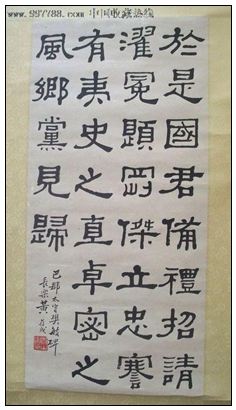 www.997788.com 中国收藏热线
於是國君備禮招請
濯冕題罡傑立忠謇
有夷史之直卓密之
風鄉黨見歸
巴郡太守樊敏碑
長樂黃